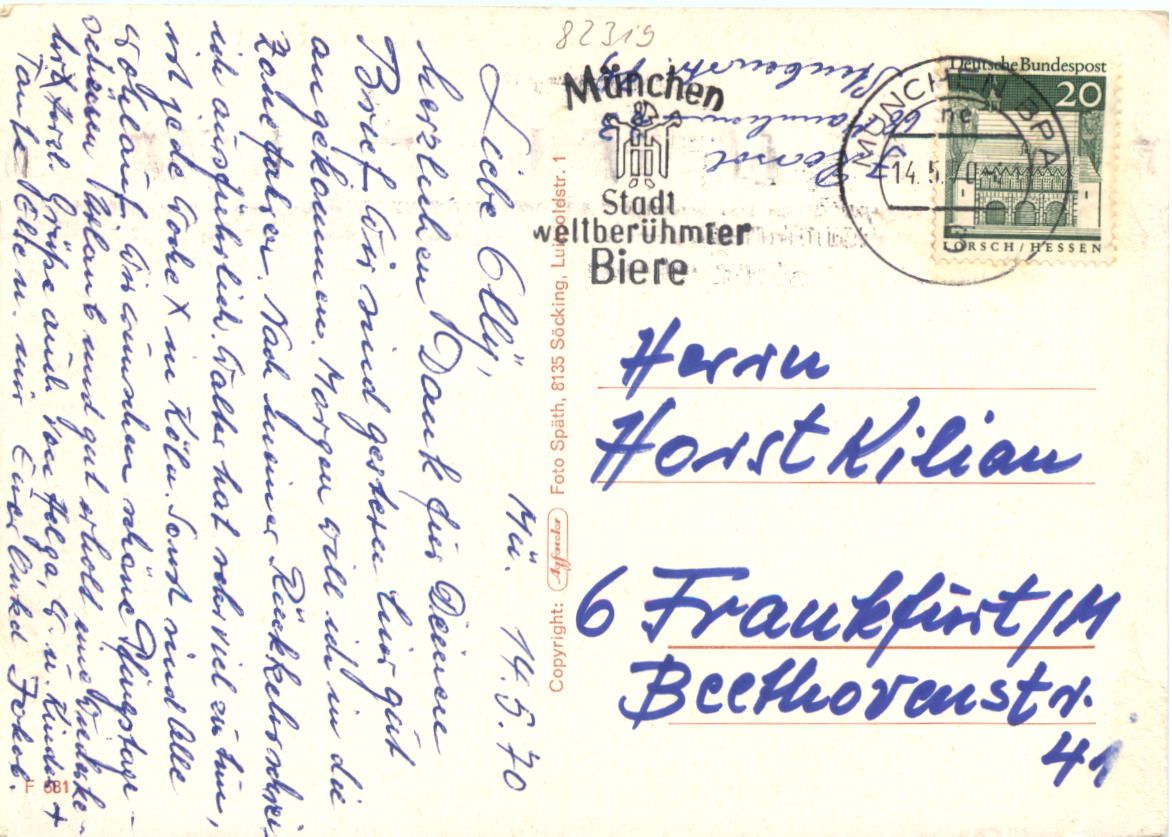 82319
München
Stadt
weltberühmter
Biere
MÜNCHEN BPA
14.5.70
Deutsche Bundespost
20
LORSCH / HESSEN
Mü. 14.5.70
Liebe Olly,
herzlichen Dank für Deinen
Brief. Wir sind gestern hier gut
angekommen. Morgen will ich in die
Zone fahren. Nach meiner Rückkehr schrei-
ich ausführlich. hat sehr viel zu tun,
ist jede Woche X in Köln. Sonst sind Alle
Wohlauf. Wir wünschen schöne Pfingsttage -
schönen Urlaub und gut erholt
herzl. Grüße auch von Helga, G. u. Kinder +
Tante Else u. mir Euer Onkel Jakob.
Herrn
Horst Kilian
6 Frankfurt/M
Beethovenstr.
41
Copyright: Foto Späth, 8135 Söcking, Luitpoldstr. 1
F 681